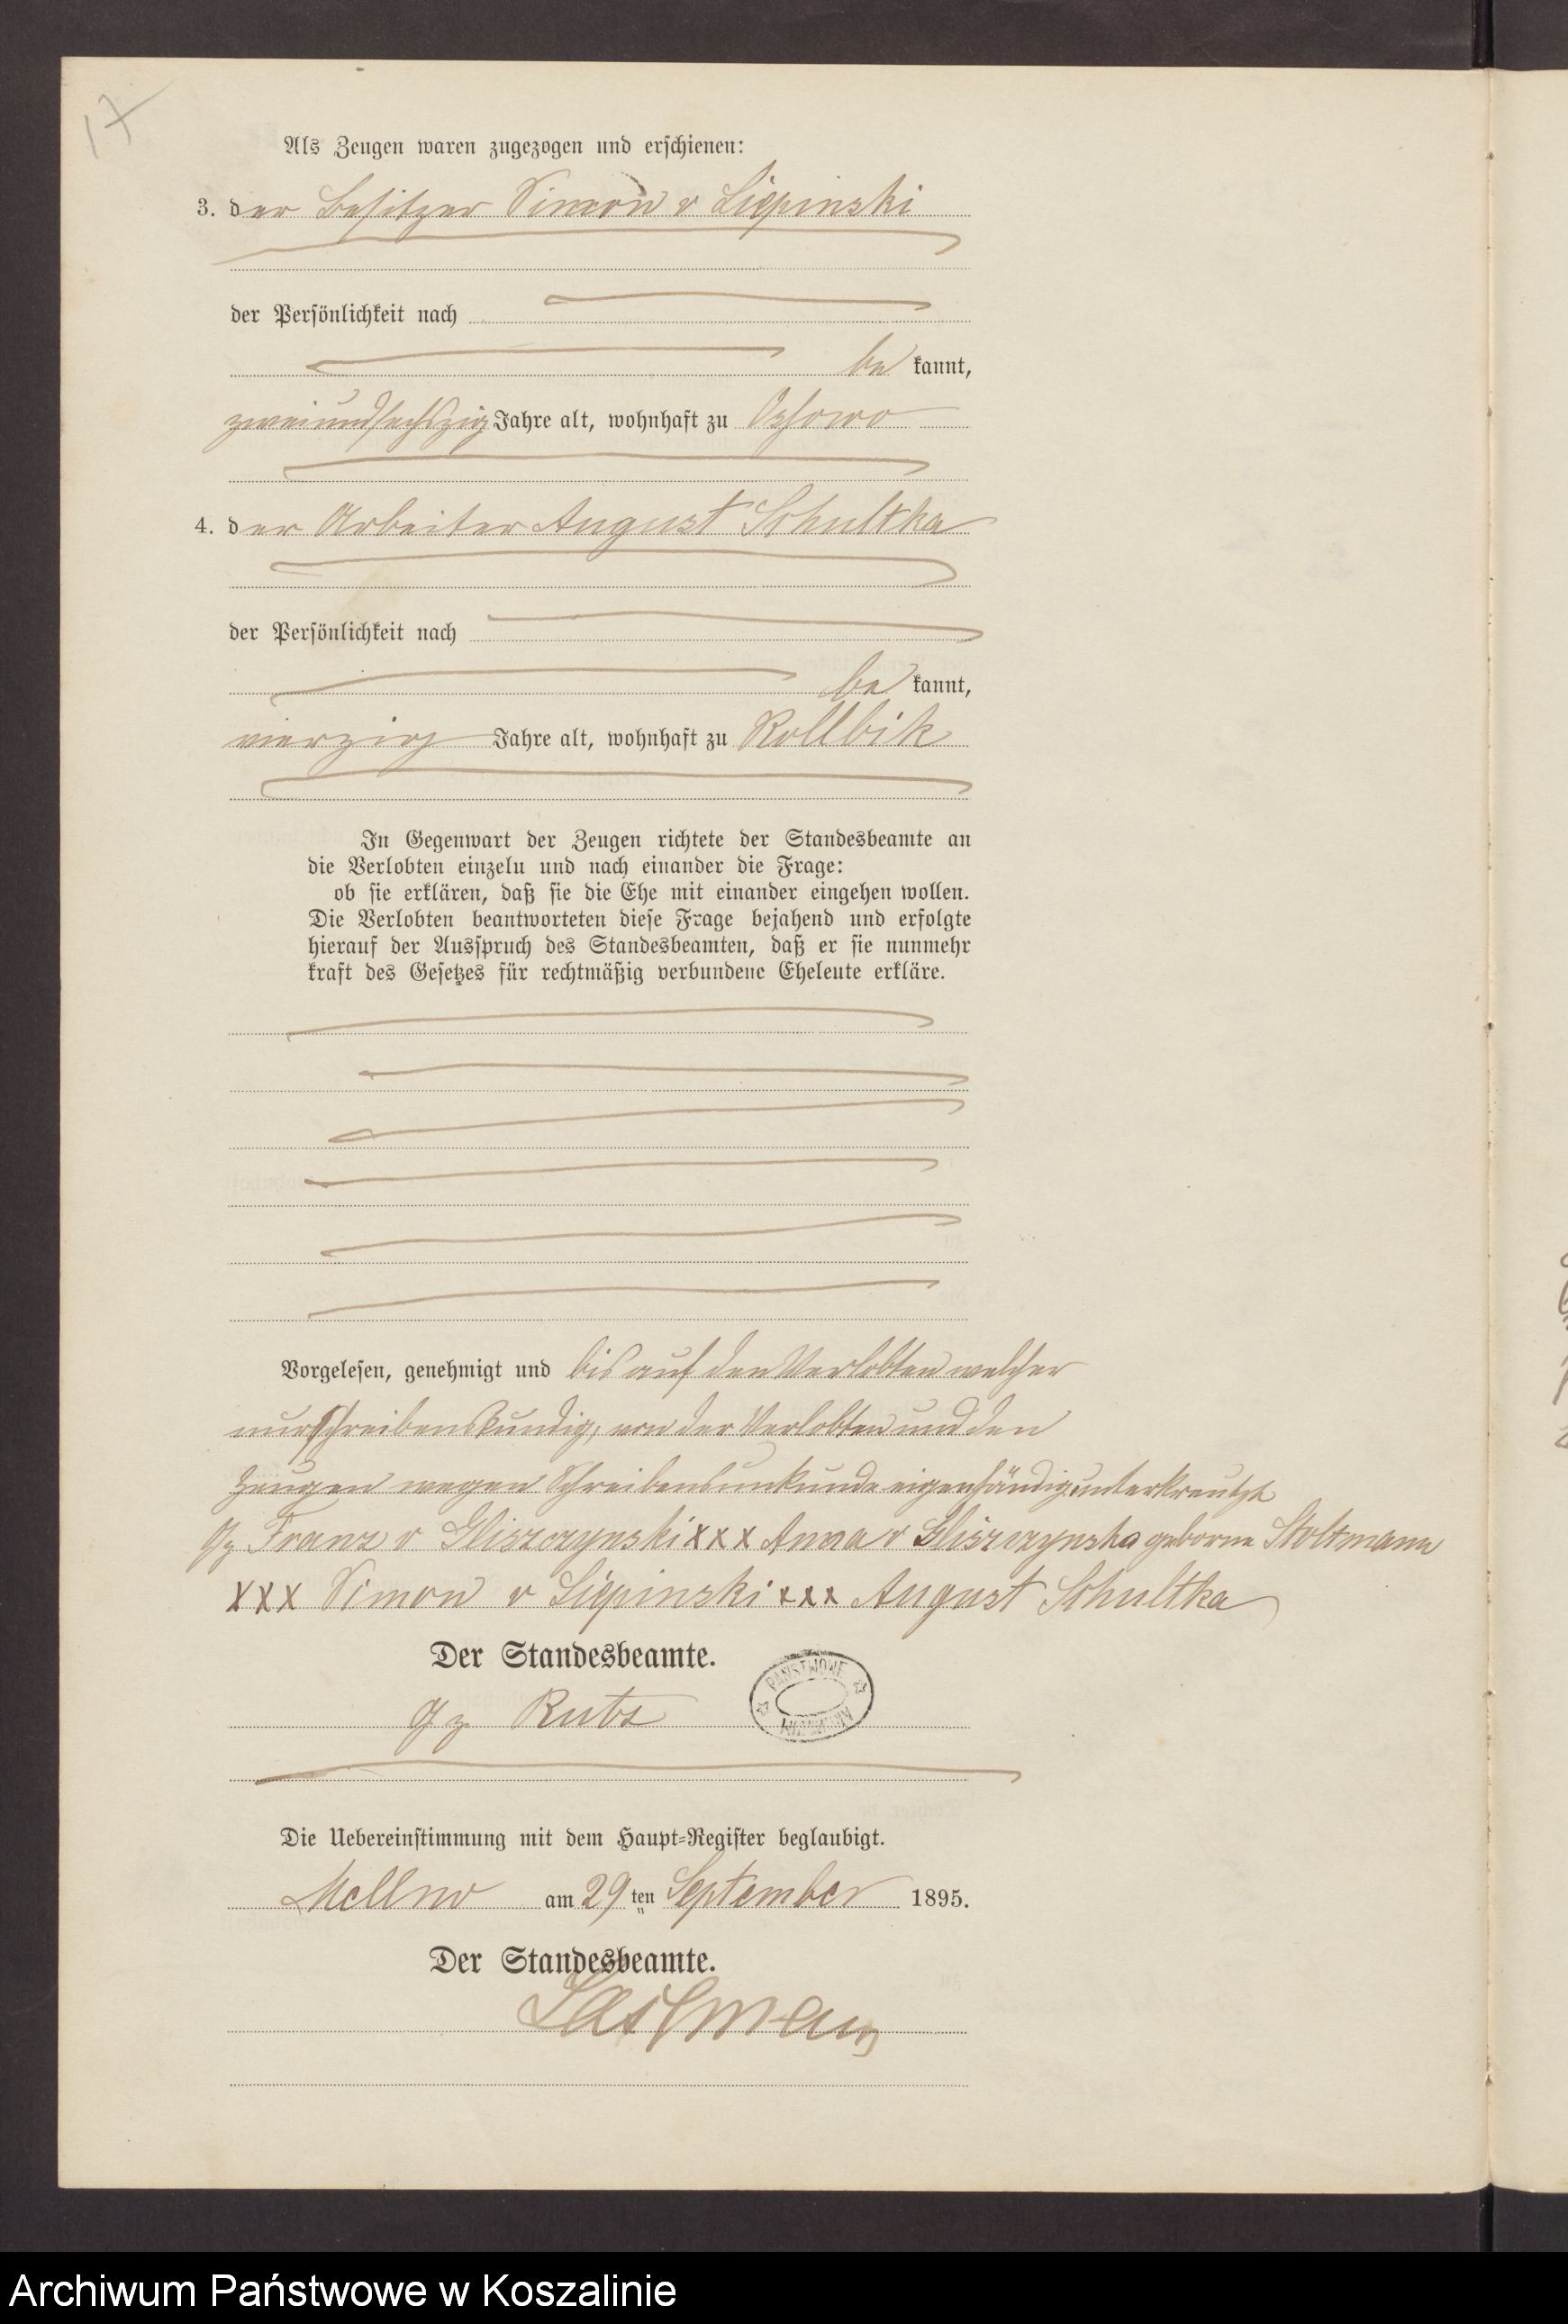 17
Als Zeugen waren zugezogen und erschienen:
3. der Besitzer Simon v Liepinski
der Persönlichkeit nach
be kannt,
zweiundsechszig Jahre alt, wohnhaft zu Ossowo
4. der Arbeiter August Schultka
der Persönlichkeit nach
be kannt,
vierzig Jahre alt, wohnhaft zu Rollbik
In Gegenwart der Zeugen richtete der Standesbeamte an
die Verlobten einzelu und nach einander die Frage:
ob sie erklären, daß sie die Ehe mit einander eingehen wollen.
Die Verlobten beantworteten diese Frage bejahend und erfolgte
hierauf der Ausspruch des Standesbeamten, daß er sie nunmehr
kraft des Gesetzes für rechtmäßig verbundene Eheleute erkläre.
Vorgelesen, genehmigt und bis auf den Verlobten welcher
nur schreibenskundig, von der Verlobten und den
Zeugen wegen Schreibensunkunde eigenhändig unterkreutzt
gz Franz v Gliszczynski xxx Anna v Gliszczynska geborne Stoltmann
xxx Simon v Liepinski xxx August Schultka
Der Standesbeamte.
gz
PAŃSTWOWE ARCHIWUM
Die Uebereinstimmung mit dem Haupt-Register beglaubigt.
Mellno am 29 ten September 1895.
Der Standesbeamte.
Archiwum Państwowe w Koszalinie